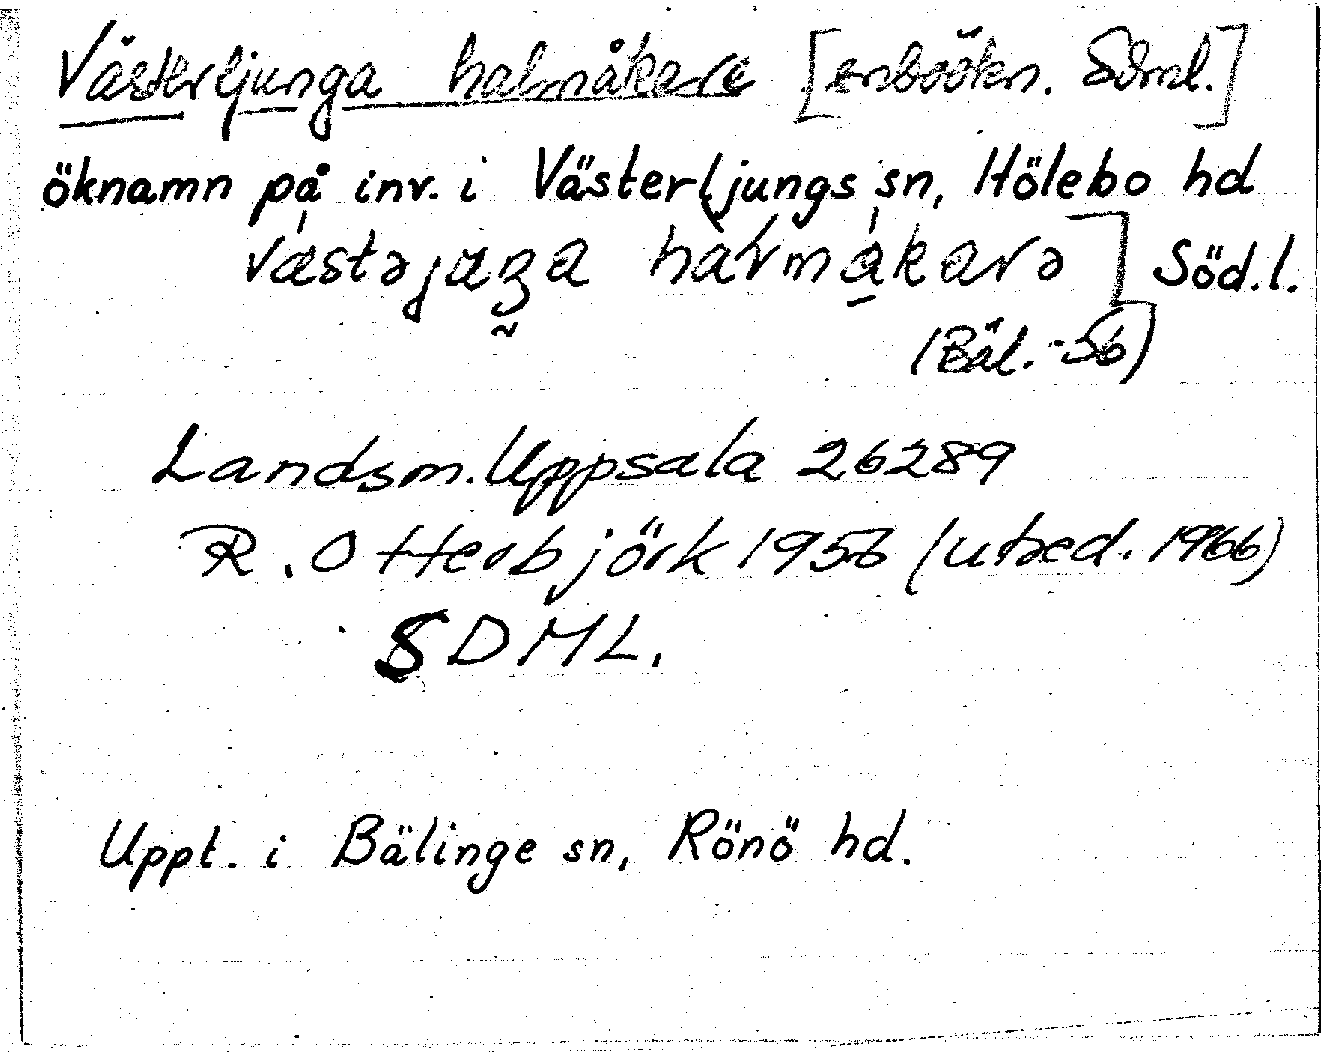 Västerljunga halmåkare [inböökn. Söml.]
öknamn på inv. i Västerljungs sn, Hölebo hd
västəjuŋa halmåkarə] Söd.l.
(Bäl. -56)
Landsm. Uppsala 26289
R. Otterbjörk 1956 (utred. 1966)
SDML.
Uppt. i Bälinge sn, Rönö hd.